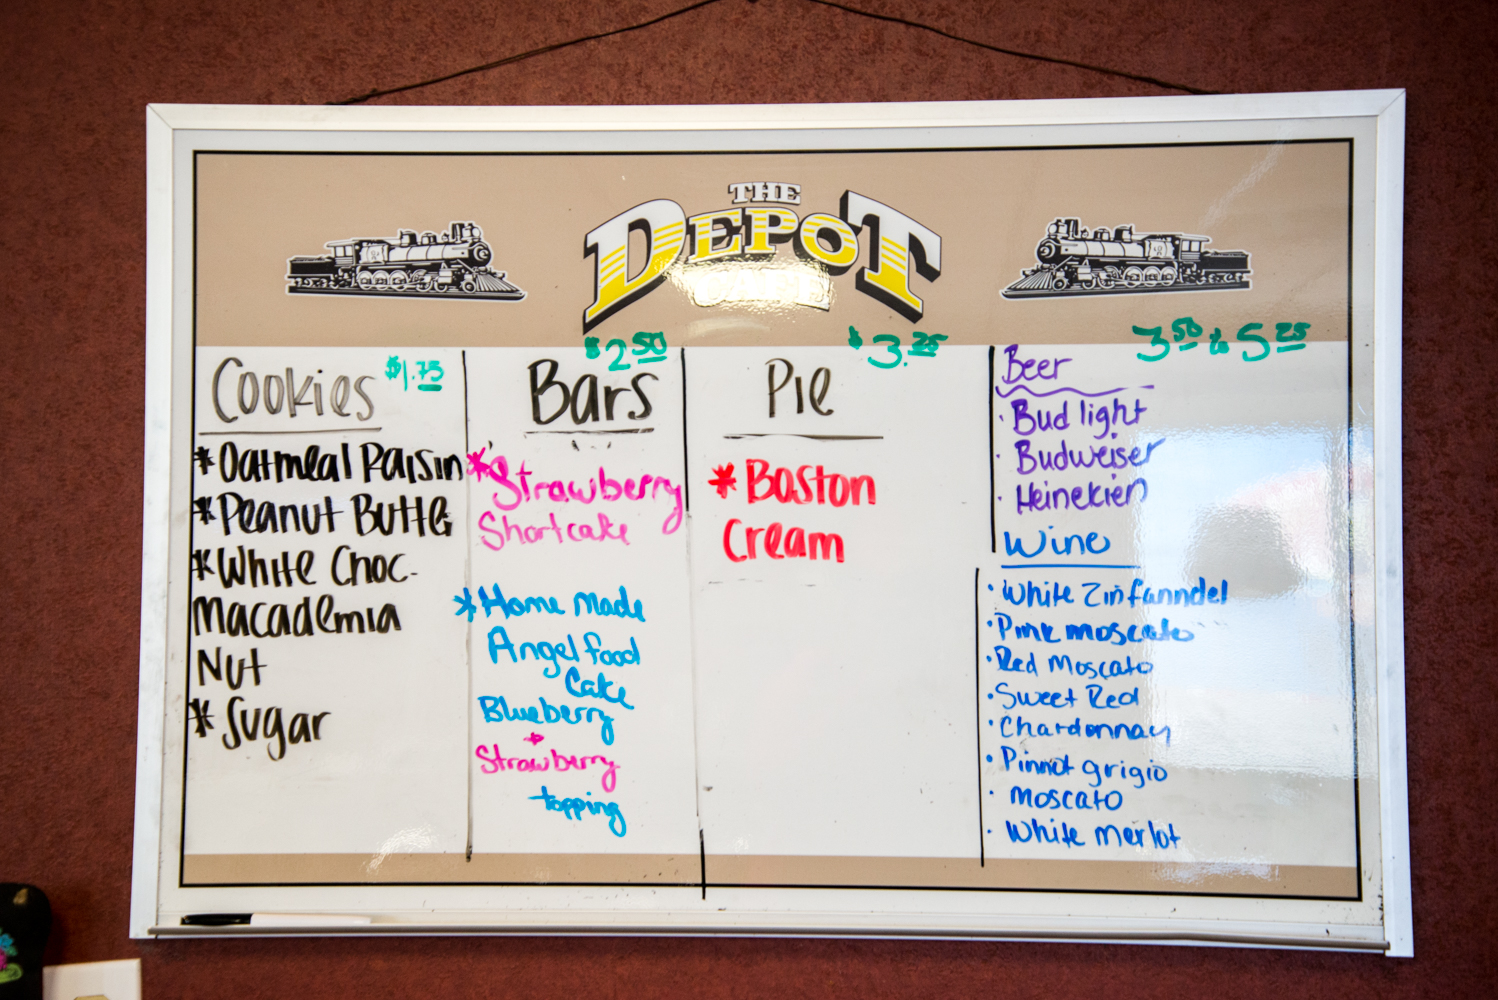 THE
DEPOT
CAFE
Cookies $1.75
*Oatmeal Raisin
*Peanut Butter
*White Choc.
Macademia
Nut
*Sugar
$2.50
Bars
*Strawberry
Shortcake
*Home Made
Angel food
Cake
Blueberry
*
Strawberry
topping
$3.25
Pie
*Boston
Cream
3.50 to 5.25
Beer
· Bud light
· Budweiser
· Heinekien
Wine
· White Zinfanndel
· Pink moscato
· Red Moscato
· Sweet Red
· Chardonnay
· Pinnot grigio
· Moscato
· White merlot